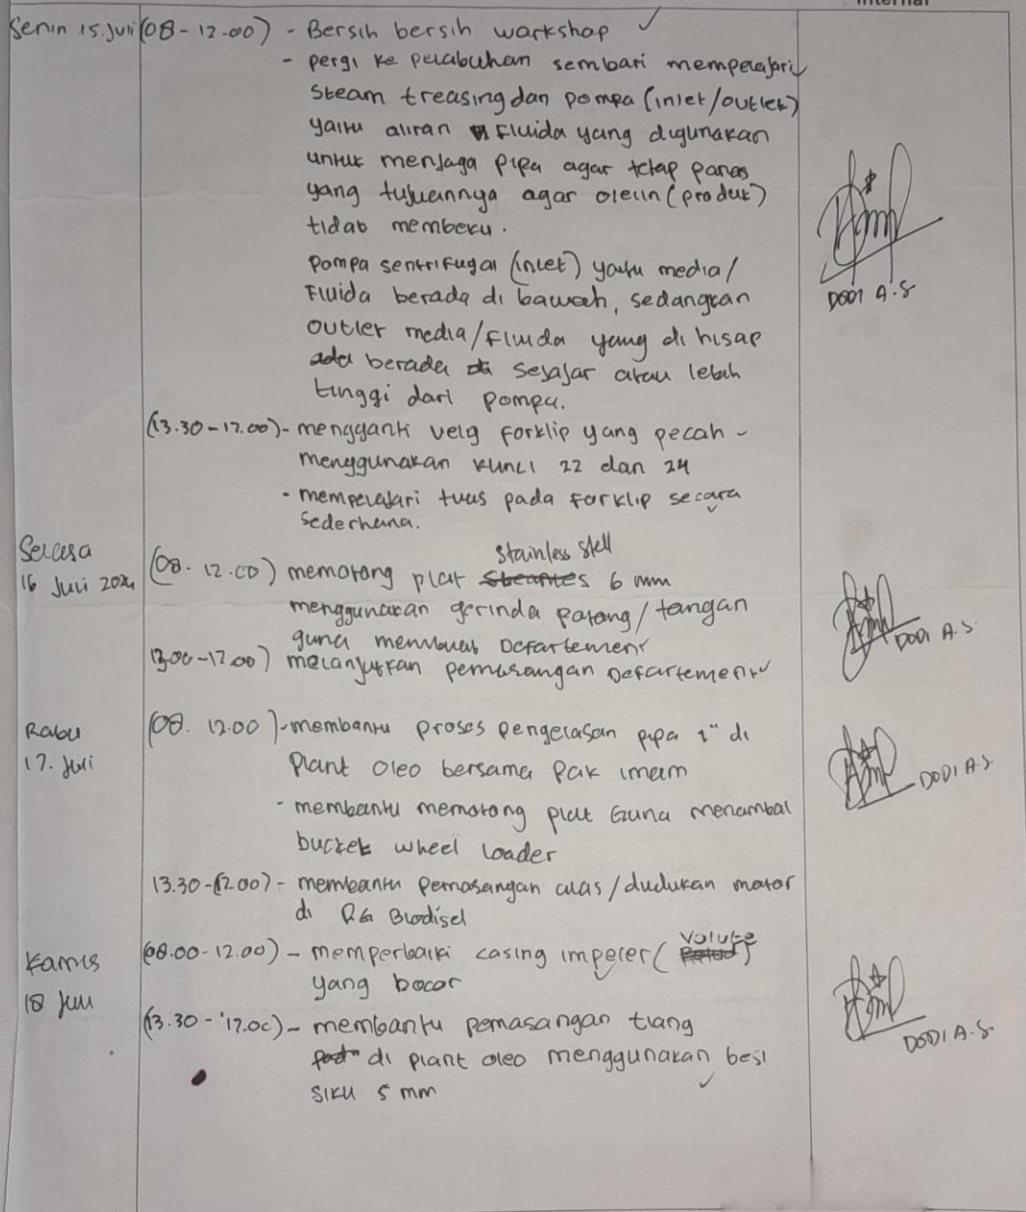 Internal
Senin 15. Juli (08 - 12.00) - Bersih bersih workshop ✓
- pergi ke pelabuhan sembari mempelajari
Steam treasing dan pompa (inlet/outlet)
yaitu aliran fluida yang digunakan
untuk menjaga pipa agar tetap panas
yang tujuannya agar olein (produk)
tidak membeku.
Pompa sentrifugal (inlet) yaitu media/
Fluida berada di bawah, sedangkan
outlet media/fluida yang di hisap
berada sejajar atau lebih
tinggi dari pompa.
DODI A.S
(13.30 - 17.00) - mengganti velg forklip yang pecah -
menggunakan kunci 22 dan 24
- mempelajari tuas pada forklip secara
sederhana.
Selasa
16 Juli 2024
stainless stell
(08. 12.00) memotong plat 6 mm
menggunakan gerinda potong/tangan
guna membuat Defartement
13.00 - 17.00) melanjutkan pemasangan Defartement ✓
DODI A.S.
Rabu
17. Juli
(08. 12.00) - membantu proses pengelasan pipa 1" di
Plant Oleo bersama Pak imam
- membantu memotong plat Guna menambal
bucket wheel loader
DODI A.S
13.30 - (17.00) - membantu pemasangan alas/dudukan motor
di Biodisel
Kamis
18 Juli
(08.00 - 12.00) - memperbaiki casing impeler (Volute)
yang bocor
(13.30 - 17.00) - membantu pemasangan tiang
di plant oleo menggunakan besi
siku 5 mm
DODI A.S.